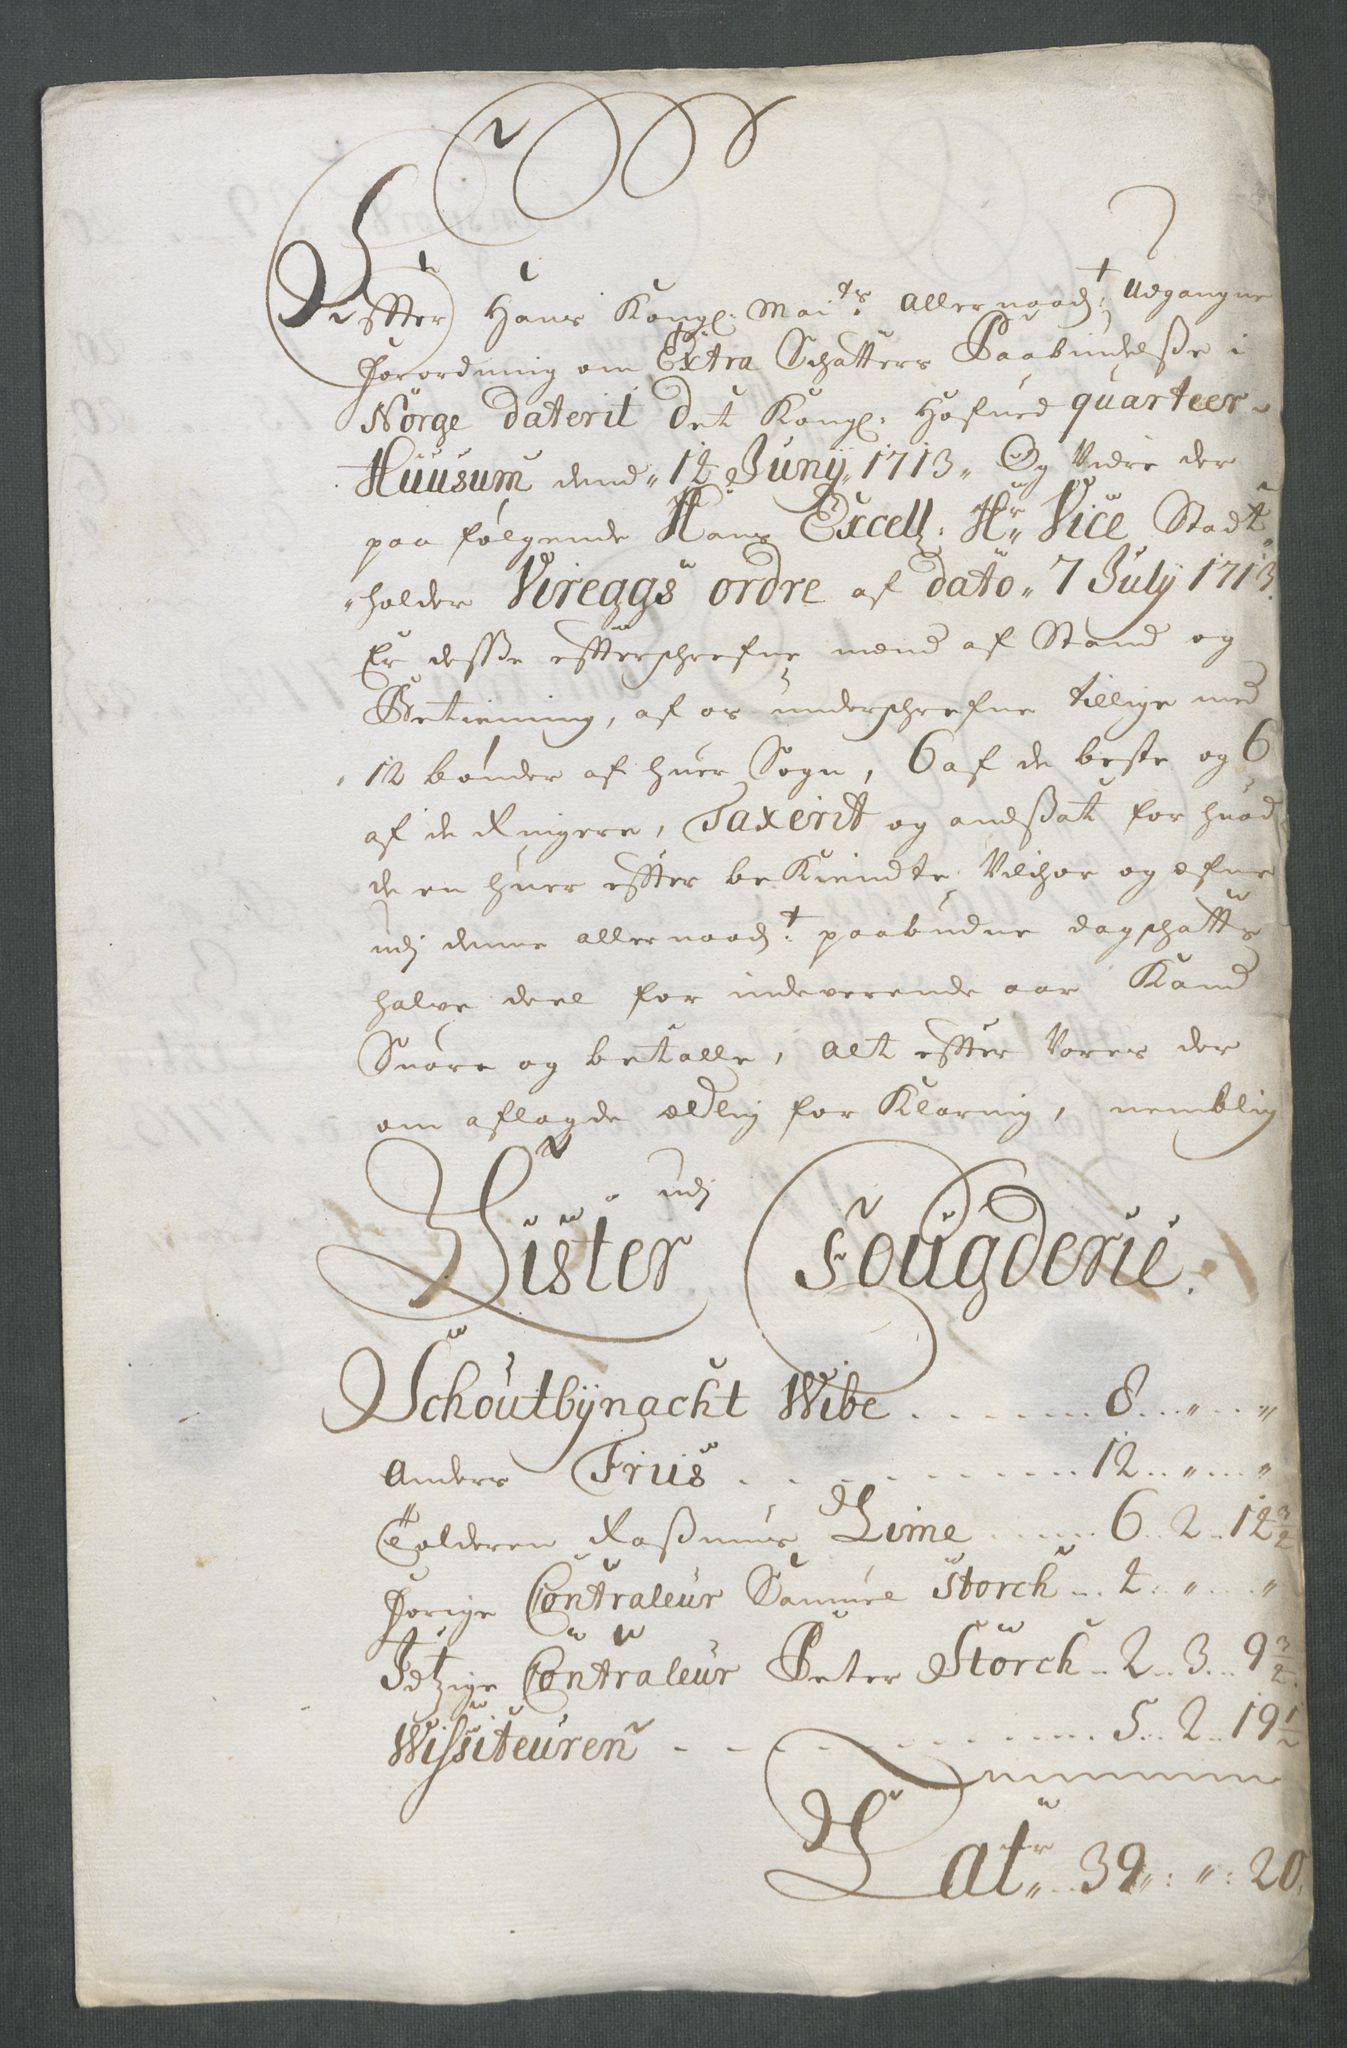 Effter Hans Kongl: Mai:ts Allernaad:t Udgangne
Forordning om Extra Schatters Paabindelsße i
Norge daterit det Kongl: Hofued quarteer
Huusum dend 12 Junij 1713 Og Vidre der
paa følgende Hans Excell: Hr Vice Stadt
holder Vireggs ordre af dato 7 July 1713
Er desße effterschrefne mend af Stand og
Betiening, af os underschrefne tillige med
12 bønder af huer Sogn, 6 af de beste og 6
af de Ringere, Taxerit og andsßat for huad
de en huer effter be Kiendte Vilchor og Efne
udj denne allernaad:t paabudne dagschatts
halve deel for indeverende aar Kand
Suare og betalle, alt effter Vores der
om aflagde Edlig for Klaring, nemblig
udj
Lister Fougderie.
Schoutbynacht Wibe . . . 8 . " . "
Anders Friis . . . 12 . " . "
Tolderen Raßmus Lime . . . 6 . 2 . 12 3/2
Forige Contraleur Samuel Storch . . 2 : " . "
Jtzige Contraleur Peter Storch . . 2 . 3 . 9 3/2
Wissiteuren . . . 5 . 2 . 19 1/2
Latr 39 " : " : 20